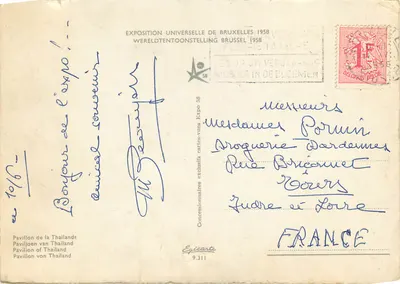 EXPOSITION UNIVERSELLE DE BRUXELLES 1958
WERELDTENTOONSTELLING BRUSSEL 1958
ce 10/6 -
Bonjour de l'expo! -
amical souvenir
M.
Concessionnaires exclusifs cartes-vues Expo 58
Pavillon de la Thaïlande
Paviljoen van Thailand
Pavilion of Thailand
Pavillon von Thailand
Egicarte
9.311
1F
Messieurs
Mesdames
Droguerie Dardennes
Rue Briçonnet
Tours
Indre et Loire
FRANCE